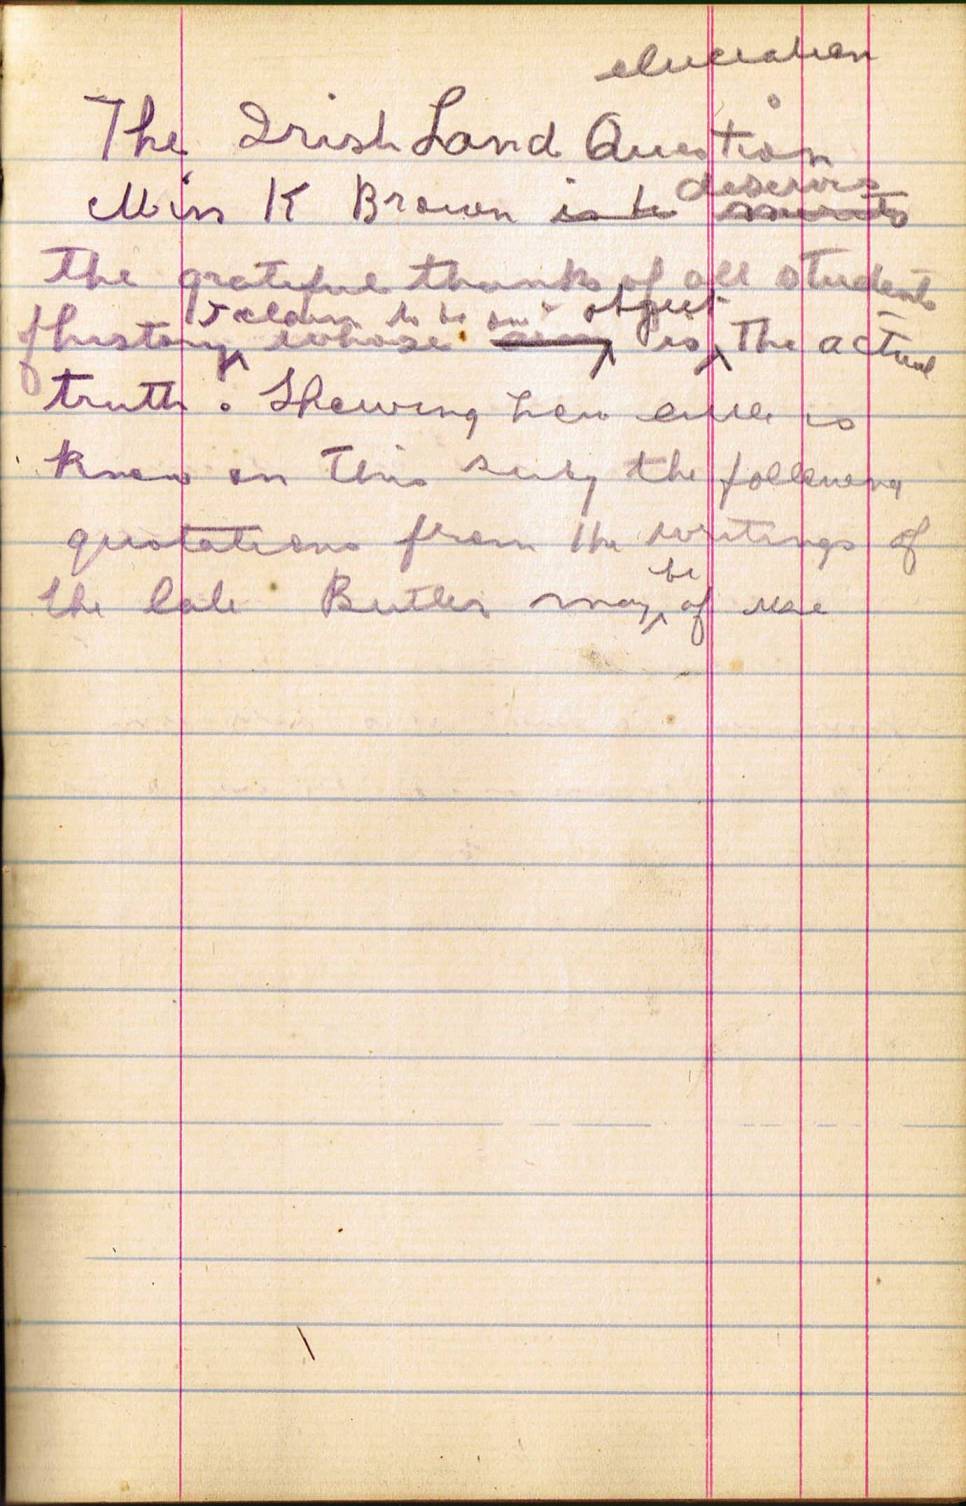 The Irish Land Question
Miss K Brown is to deserves merits
the grateful thanks of all students
of history I claim to be one whose object is the actual
truth. Shewing how little is
know on this subj the following
quotations from the writings of
the late Butler may be of use